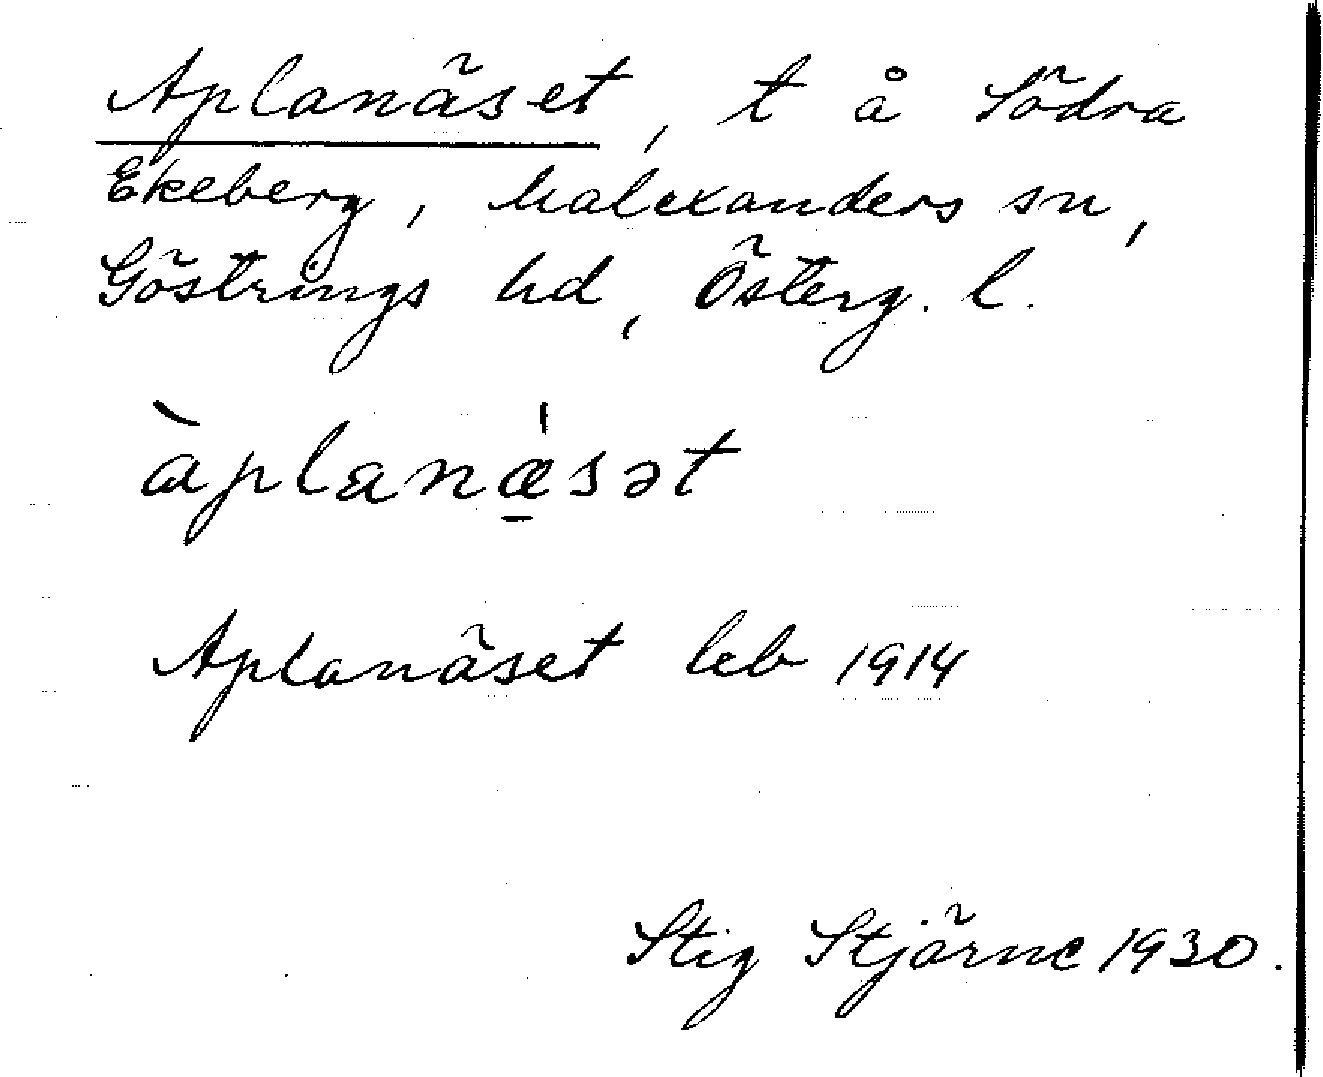 Aplanäset, t å Södra
Ekeberg, Malexanders sn,
Göstrings hd, Österg. l.
àplanǽ̱sət
Aplanäset leb 1914
Stig Stjärne 1930.